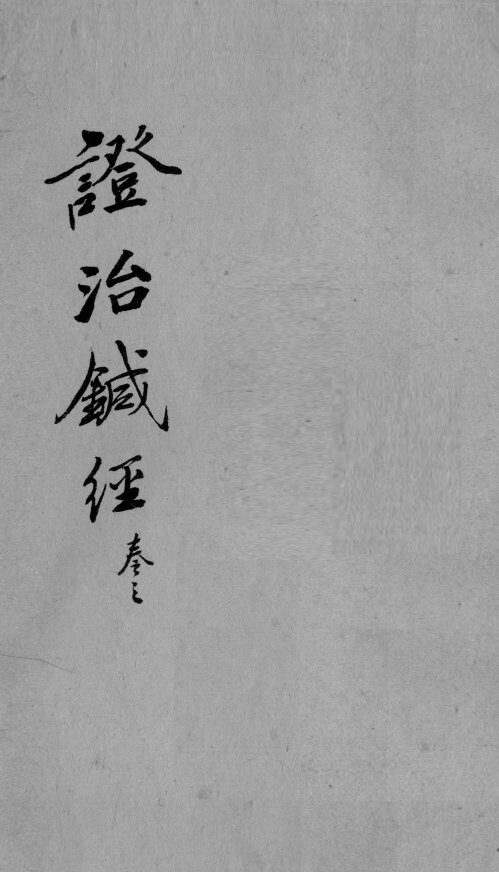 證治鍼經
卷三